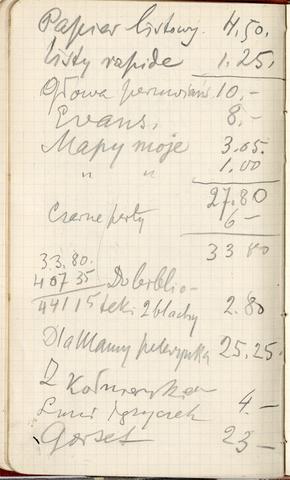 Papier listowy. 4.50.
listy rapide 1.25.
Głowa 10.-
Evans. 8.-
Mapy moje 3.05.
" " 1.00
27.80
Czarne perły 6-
33 80
33.80.
407 35
441 15 teki 2 blachy 2.80
Dla Mamy pelerynka 25.25
2
4.-
Gorset 23-